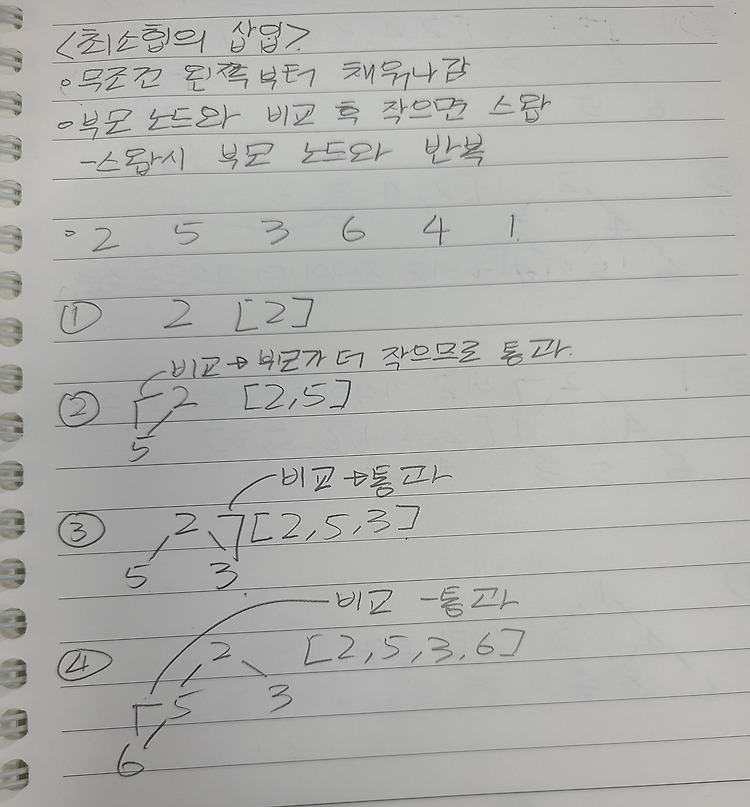 <최소힙의 삽입>
∘무조건 왼쪽부터 채워나감
∘부모 노드와 비교 후 작으면 스왑
-스왑시 부모 노드와 반복
∘2 5 3 6 4 1
① 2 [2]
비교→부모가 더 작으므로 통과.
② 2 [2,5]
5
비교→통과
③ 2 [2,5,3]
5 3
비교 -통과
④ 2 [2,5,3,6]
5 3
6